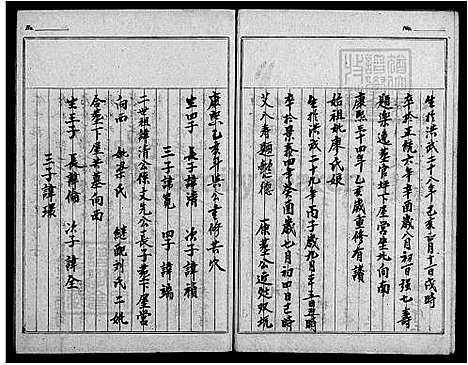 生於洪武二十八年乙亥二月十三日戌時
卒於正統六年辛酉歲八月初一日 七壽
題樂逸墓官坪下屋營坐北向南
康熙三十四年乙亥歲重修有讚
始祖妣廖氏娘
生於洪武二十九年丙子歲九月 日丑時
卒於景泰四年癸酉歲七月初四日巳時
艾八壽題懿德 墓公近 坑
康熙乙亥年與公重修共穴
生四子 長子諱清 次子諱禎
三子諱寬 四子諱端
二世祖諱清公係文先公長子墓下屋營
向西 妣朱氏 繼配刘氏二妣
合墓下屋共墓向西
生三子 長諱倫 次子諱全
三子諱環